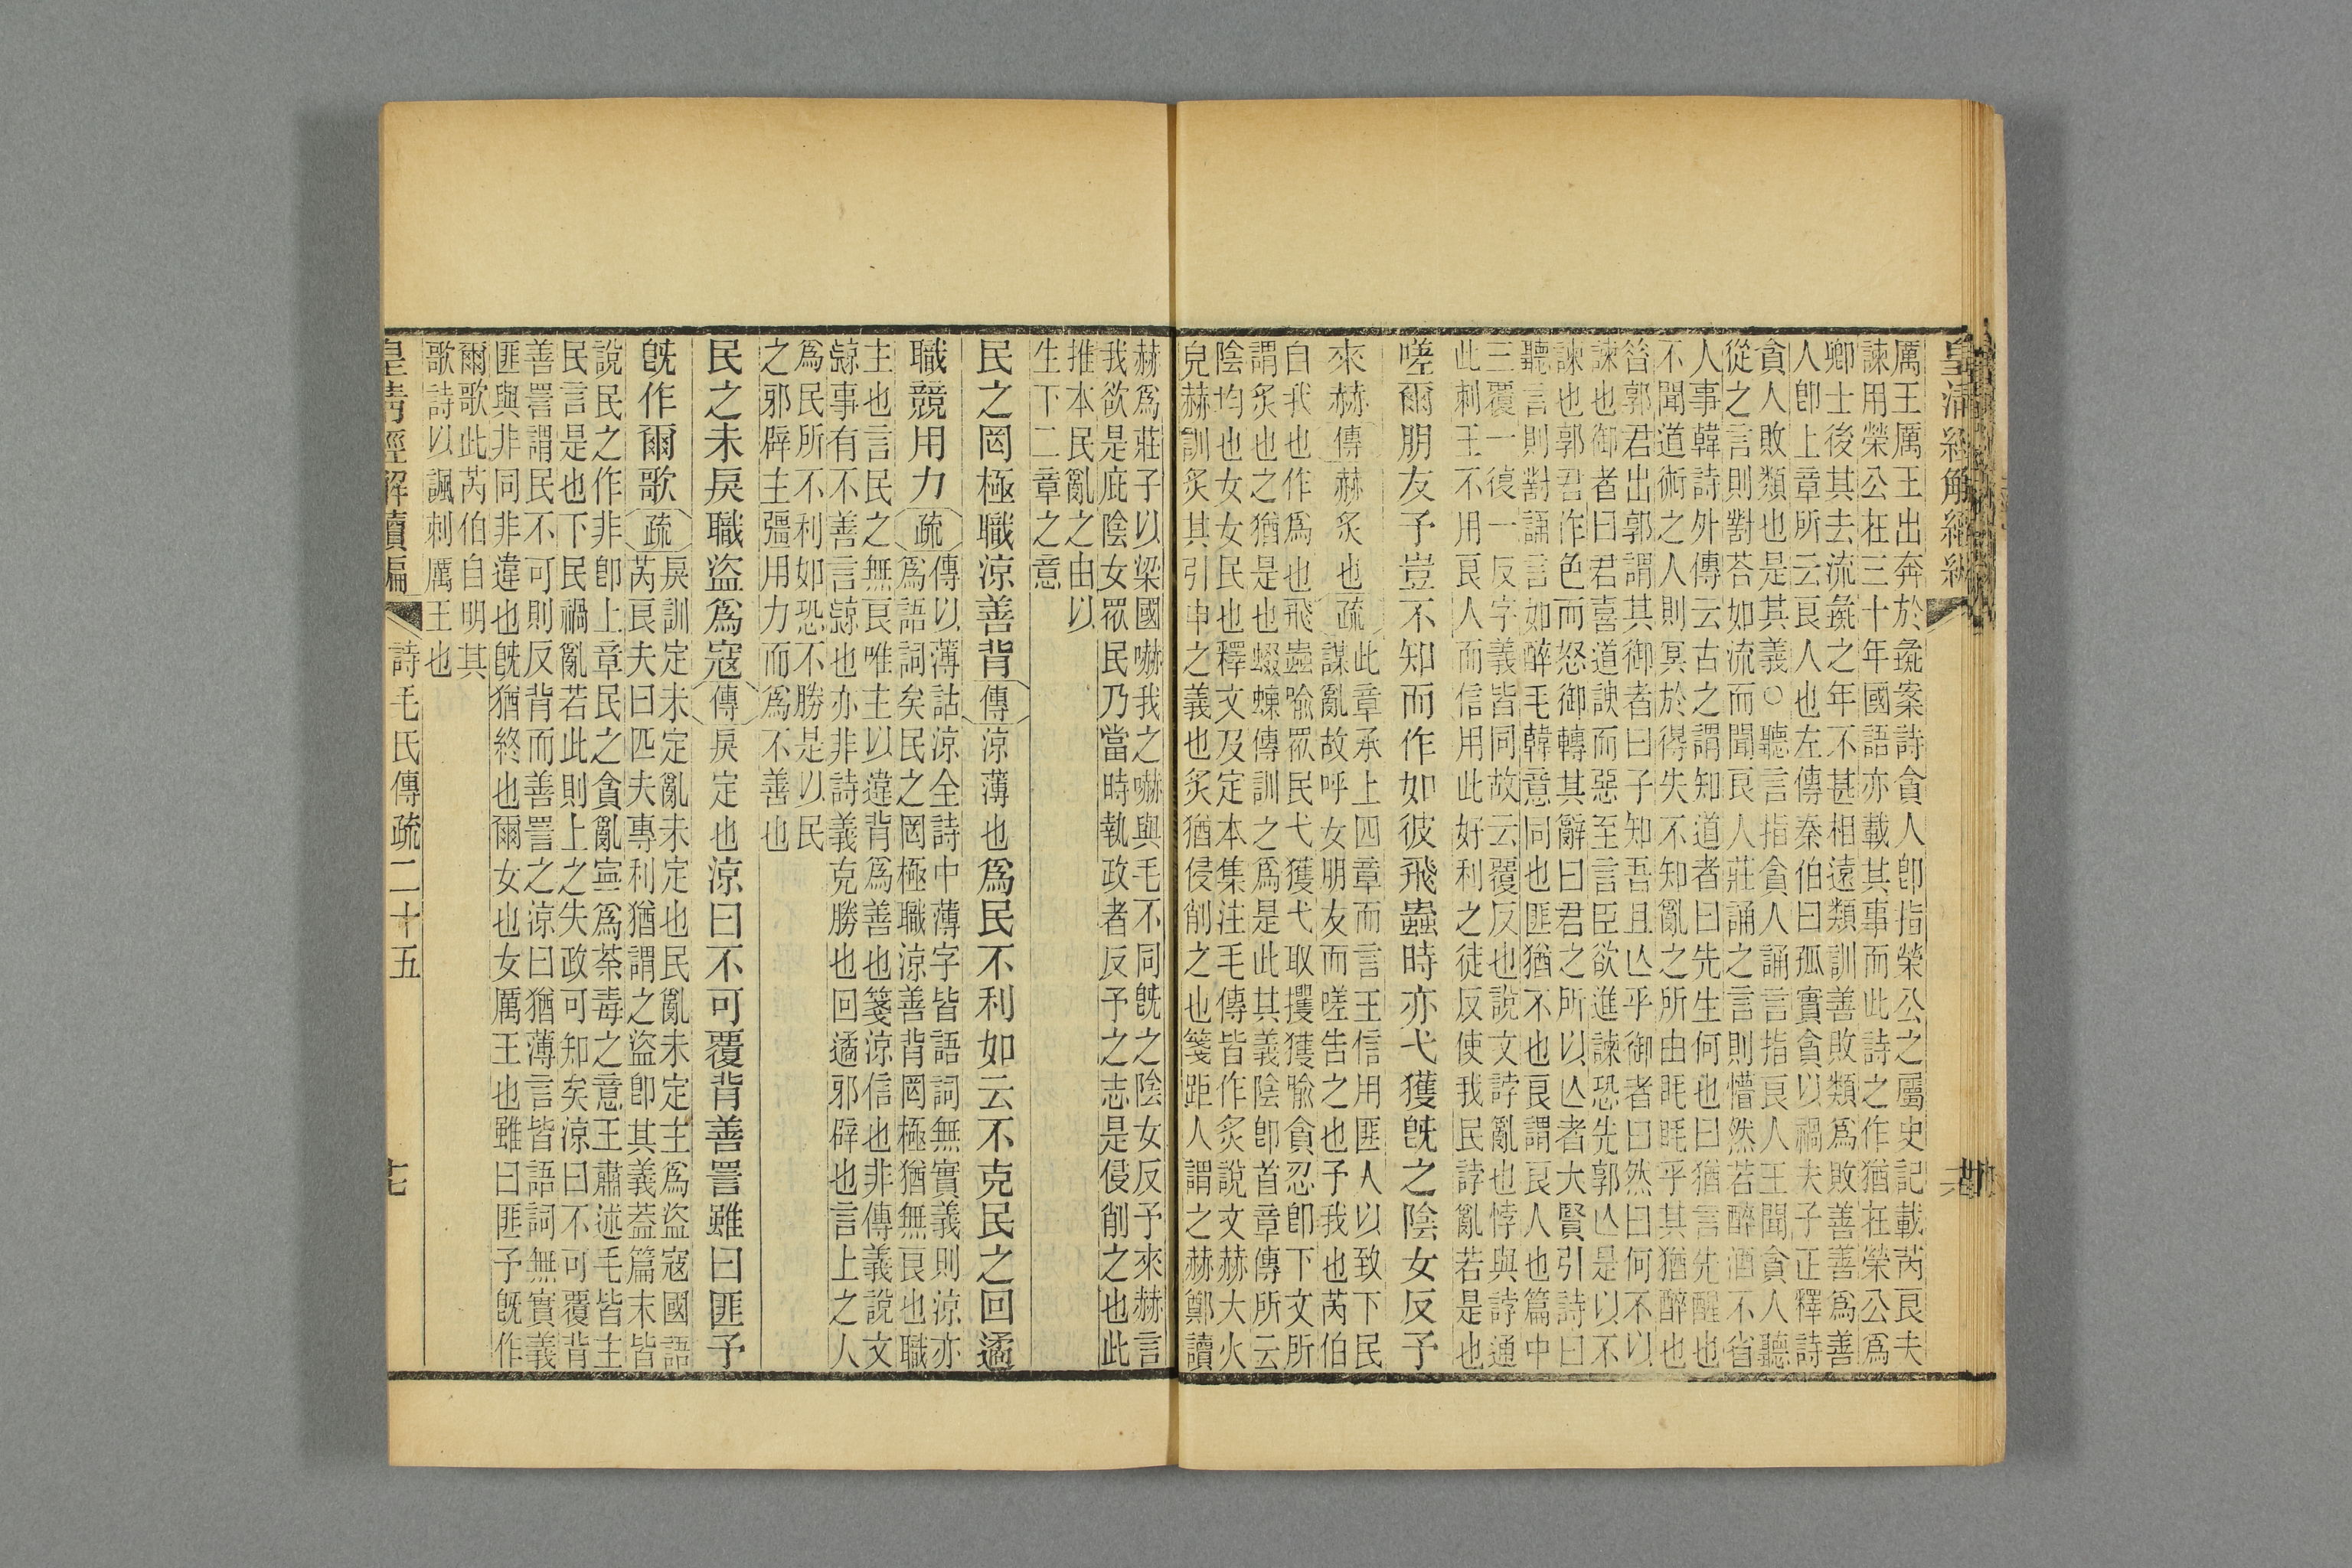 厲王厲王出奔於彘案詩貪人卽指榮公之屬史記載芮良夫
諫用榮公在三十年國語亦載其事而此詩之作猶在榮公爲
卿士後其去流彘之年不甚相遠類訓善敗類爲敗善善爲善
人卽上章所云良人也左傳秦伯曰孤實貪以禍夫子正釋詩
貪人敗類也是其義○聽言指貪人誦言指良人王聞貪人聽
從之言則對荅如流而聞良人莊誦之言則懵然若醉酒不省
人事韓詩外傳云古之謂知道者曰先生何也曰猶言先醒也
不聞道術之人則冥於得失不知亂之所由眊眊乎其猶醉也
昔郭君出郭謂其御者曰子知吾且亾乎御者曰然曰何不以
諫也御者曰君喜道諛而惡至言臣欲進諫恐先郭亾是以不
諫也郭君作色而怒御轉其辭曰君之所以亾者大賢引詩曰
聽言則對誦言如醉毛韓意同也匪猶不也良謂良人也篇中
三覆一復一反字義皆同故云覆反也說文誖亂也悖與誖通
此刺王不用良人而信用此好利之徒反使我民誖亂若是也
嗟爾朋友予豈不知而作如彼飛蟲時亦弋獲旣之陰女反予
來赫傳赫炙也疏
此章承上四章而言王信用匪人以致下民
謀亂故呼女朋友而嗟告之也予我也芮伯
自我也作爲也飛蟲喻眾民弋獲弋取攫獲喻貪忍卽下文所
謂炙也之猶是也蝃蝀傳訓之爲是此其義陰卽首章傳所云
陰均也女女民也釋文及定本集注毛傳皆作炙說文赫大火
皃赫訓炙其引申之義也炙猶侵削之也箋距人謂之赫鄭讀
赫爲莊子以梁國嚇我之嚇與毛不同旣之陰女反予來赫言
我欲是庇陰女眾民乃當時執政者反予之志是侵削之也此
推本民亂之由以
生下二章之意
民之罔極職涼善背傳涼薄也爲民不利如云不克民之回遹
職競用力疏
傳以薄詁涼全詩中薄字皆語詞無實義則涼亦
爲語詞矣民之罔極職涼善背罔極猶無良也職
主也言民之無良唯主以違背爲善也箋涼信也非傳義說文
𩗬事有不善言𩗬也亦非詩義克勝也回遹邪辟也言上之人
爲民所不利如恐不勝是以民
之邪辟主彊用力而爲不善也
民之未戾職盜爲寇傳戾定也涼曰不可覆背善詈雖曰匪予
旣作爾歌疏
戾訓定未定亂未定也民亂未定主爲盜寇國語
芮良夫曰匹夫專利猶謂之盜卽其義葢篇末皆
說民之作非卽上章民之貪亂寧爲荼毒之意王肅述毛皆主
民言是也下民禍亂若此則上之失政可知矣涼曰不可覆背
善詈謂民不可則反背而善詈之涼曰猶薄言皆語詞無實義
匪與非同非違也旣猶終也爾女也女厲王也雖曰匪予旣作
爾歌此芮伯自明其
歌詩以諷刺厲王也
皇淸經解續編
詩毛氏傳疏二十五
十七